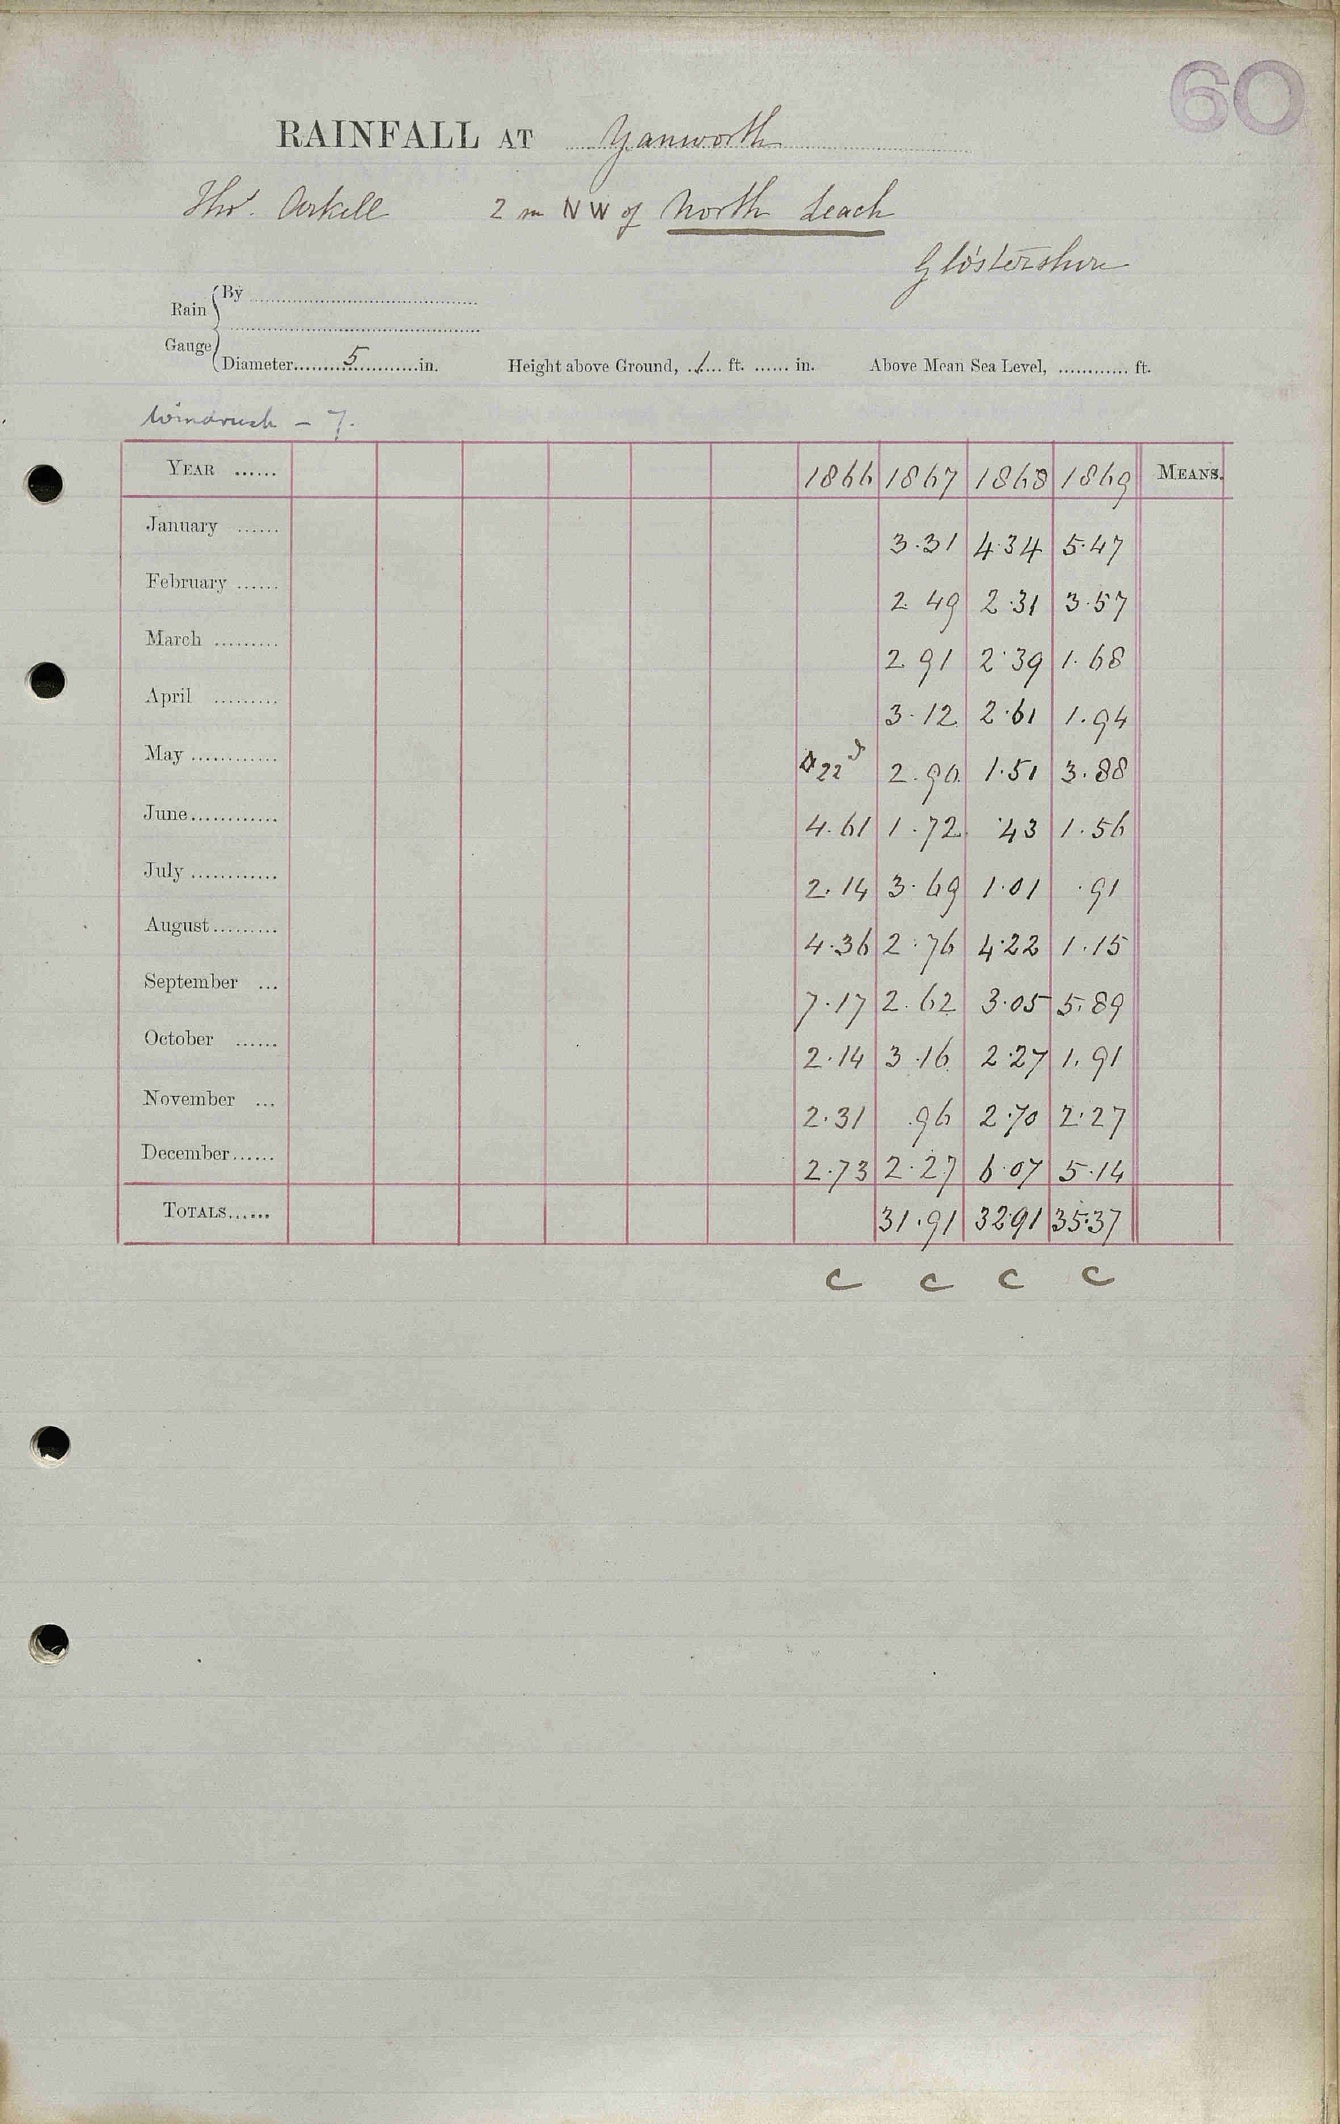 60
RAINFALL AT Yanworth
Thos. Arkell 2 m NW of North Leach
Glostershire
Rain Gauge { By
Diameter 5 in. Height above Ground, 1 ft. in. Above Mean Sea Level, ft.
Windrush - 7.
YEAR 1866 1867 1868 1869 MEANS.
January 3.31 4.34 5.47
February 2.49 2.31 3.57
March 2.91 2.39 1.68
April 3.12 2.61 1.94
May 22 2.90 1.51 3.88
June 4.61 1.72 .43 1.56
July 2.14 3.69 1.01 .91
August 4.36 2.76 4.22 1.15
September 7.17 2.62 3.05 5.89
October 2.14 3.16 2.27 1.91
November 2.31 .96 2.70 2.27
December 2.73 2.27 6.07 5.14
TOTALS 31.91 32.91 35.37
C C C C